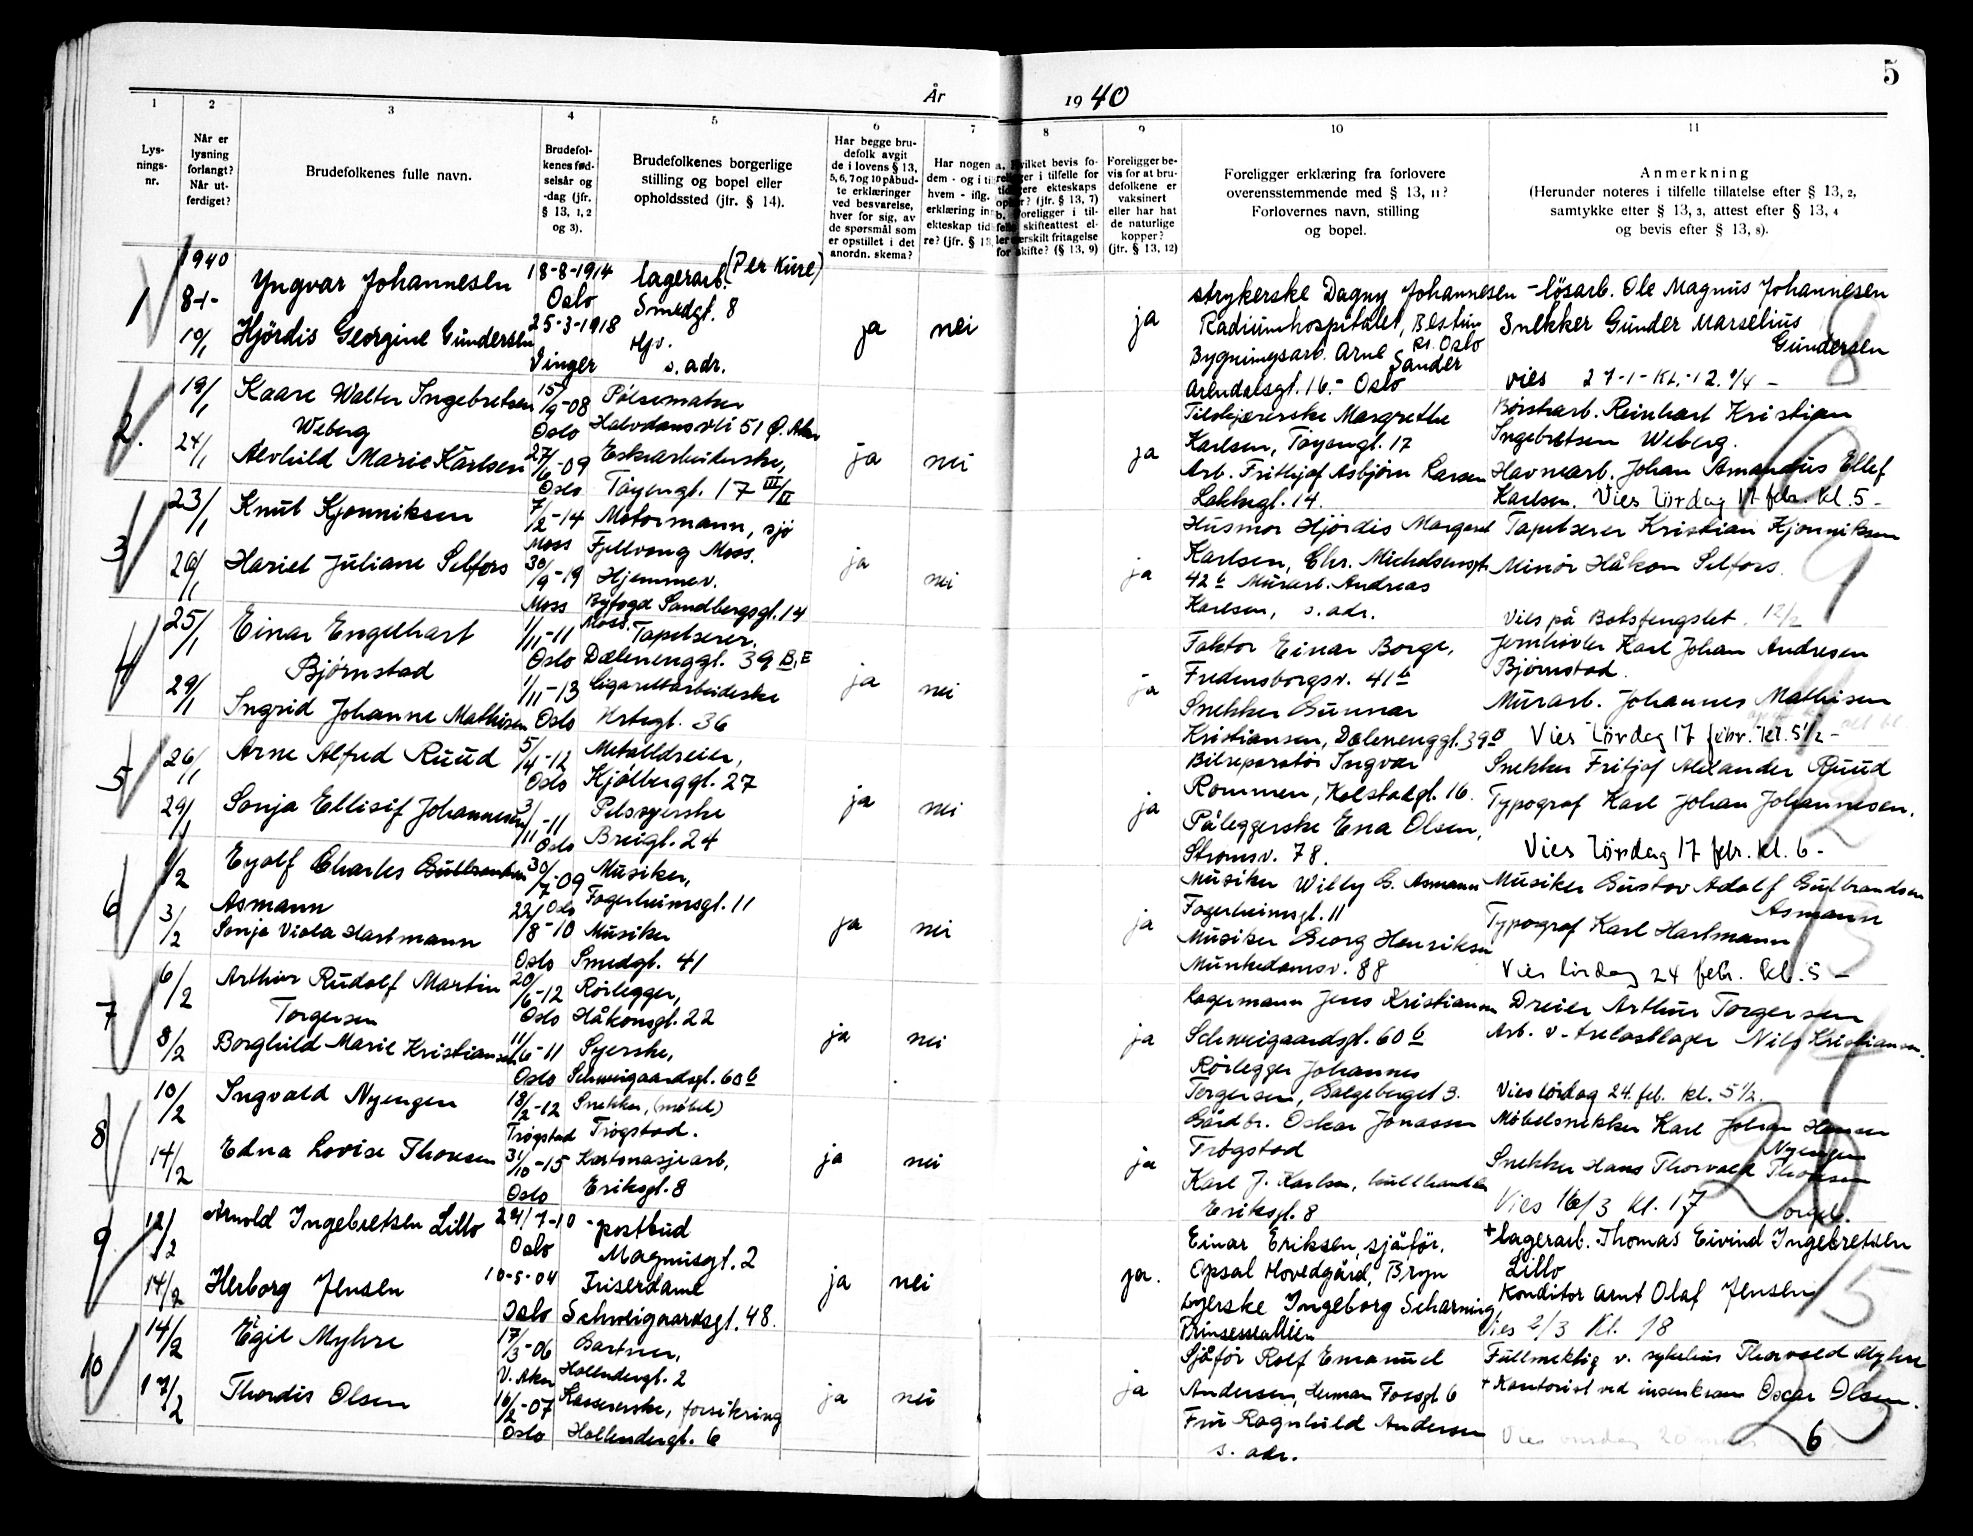 5
År 1940
1 2 3 4 5 6 7 8 9 10 11
Lys-
nings-
nr.
Når er
lysning
forlangt?
Når ut-
ferdiget?
Brudefolkenes fulle navn.
Brudefol-
kenes fød-
selsår og
-dag (jfr.
§ 13, 1, 2
og 3).
Brudefolkenes borgerlige
stilling og bopel eller
opholdssted (jfr. § 14).
Har begge bru-
defolk avgit
de i lovens § 13,
5, 6, 7 og 10 påbud-
te erklæringer
ved besvarelse,
hver for sig, av
de spørsmål som
er opstillet i det
anordn. skema?
Har nogen a
dem - og i ti
hvem - iflg.
erklæring in
ekteskap tid
re? (jfr. § 13
Foreligger be-
vis for at bru-
defolkene er
vaksinert
eller har hat
de naturlige
kopper?
(jfr. § 13, 12)
Foreligger erklæring fra forlovere
overensstemmende med § 13, 11?
Forlovernes navn, stilling
og bopel.
Anmerkning
(Herunder noteres i tilfelle tillatelse efter § 13, 2,
samtykke efter § 13, 3, attest efter § 13, 4
og bevis efter § 13, 8).
1
1940
8-1-
19/1
Yngvar Johannesen
Hjördis Georgine Gundersen
18-8-1914
Oslo
25-3-1918
Vinger
lagerarb. (Per Kure)
Smedgt. 8
Hjv.
s. adr.
ja nei ja
strykerske Dagny Johannesen
Radiumhospitalet, Bestum
pr. Oslo
Bygningsarb. Arne Sander
Arendalsgt. 16.- Oslo
- løsarb. Ole Magnus Johannesen
Snekker Gunder Marselius
Gundersen
vies 27-1-kl.-12.
8
2.
19/1
24/1
Kaare Walter Ingebretsen
Weberg
Alvhild Marie Karlsen
15/9-08
Oslo
27/6-09
Oslo
Pølsemaker
Halvdansvei 51 Ø. Aker
Eskearbeiderske,
Töyengt. 17 III/II
ja nei ja
Tilskjærerske Margrethe
Karlsen, Töyengt. 17
Arb. Frithjof Asbjörn Larsen
Lakkegt. 14.
Börstearb. Reinhart Kristian
Ingebretsen Weberg.
Havnearb. Johan Amandus Ellef
Karlsen. Vies Lördag 17 febr. kl. 5-
3
23/1
26/1
Knut Kjonniksen
Hariet Juliane Selfors
7/2-14
Moss
30/9-19
Moss
Motormann, sjö
Fjellvang Moss.
Hjemmev.
Byfogd Sandbergsgt. 14
Moss.
ja nei ja
Husmor Hjördis Margaret
Karlsen, Chr. Michelsensgt.
42b Murarb. Andreas
Karlsen, s. adr.
Tapetserer Kristian Kjonniksen
Minör Håkon Selfors.
Vies på Botsfengslet. 12/2
9
4
25/1
29/1
Einar Engelhart
Björnstad
Ingrid Johanne Mathisen
1/11-11
Oslo
1/11-13
Oslo
Tapetserer,
Dælenenggt. 39 B, E
Cigarettarbeiderske
Urtegt. 36
ja nei ja
Faktor Einar Borge,
Fredensborgsv. 41b
Snekker Gunnar
Kristiansen, Dælenenggt. 39
Jernhovler Karl Johan Andresen
Björnstad.
Murarb. Johannes Mathisen
Vies Lördag 17 febr. kl. 5½ -
5
26/1
29/1
Arne Alfred Ruud
Sonja Ellisif Johannesen
5/4-12
Oslo
3/11-11
Oslo
Metalldreier,
Kjölberggt. 27
Pelssyerske
Breigt. 24
ja nei ja
Bilreparatör Ingvar
Rommen, Kolstadgt. 16.
Påleggerske Ena Olsen,
Stromsv. 78.
Snekker Fritjof Alexander Ruud
Typograf Karl Johan Johannesen.
Vies Lördag 17 febr. kl. 6-
6
1/2
3/2
Eyolf Charles Gulbrandsen
Asmann
Sonja Viola Hartmann
30/7-09
Oslo
22/8-10
Oslo
Musiker,
Fagerheimsgt. 11
Musiker
Smedgt. 41
ja nei ja
Musiker Willy G. Asmann
Fagerheimsgt. 11
Musiker Georg Henriksen
Munkedamsv. 88
Musiker Gustav Adolf Gulbrandsen
Asmann
Typograf Karl Hartmann
Vies Lördag 24 febr. kl. 5 -
7
6/2
8/2
Arthur Rudolf Martin
Torgersen
Borghild Marie Kristiansen
20/6-12
Oslo
11/6-11
Oslo
Rörlegger,
Håkonsgt. 22
Syerske,
Schweigaardsgt. 60 b
ja nei ja
Lagermann Jens Kristiansen
Schweigaardsgt. 60 b
Rörlegger Johannes
Torgersen, Galgeberget 3.
Dreier Arthur Torgersen
Arb. v. trelastlager Nils Kristiansen.
Vies lördag 24. feb. kl. 5½.
8
10/2
14/2
Ingvald Nyengen
Edna Lovise Thoresen
18/2-12
Trögstad
31/10-15
Oslo
Snekker, (möbel)
Trögstad.
Kartonasjearb,
Eriksgt. 8
ja nei ja
Gårdbr. Oskar Jonassen
Trögstad
Karl J. Karlsen,
Eriksgt. 8
Møbelsnekker Karl Johan Hansen
Nyengen
Snekker Hans Thorvald Thoresen
Vies 16/3 kl. 17
20
9
12/2
14/2
Arnold Ingebretsen Lillo
Herborg Jensen
24/7-10
Oslo
10-5-04
Oslo
-postbud
Magnusgt. 2
Friserdame
Schweigaardsgt. 48.
ja nei ja.
Einar Eriksen, sjåfør.
Opsal Hovedgård, Bryn
syerske Ingeborg Scharning
Prinsessealléen
+lagerarb. Thomas Eivind Ingebretsen
Lillo
Konditor Arnt Olaf Jensen
Vies 2/3 Kl. 18
15
10
14/2
17/2
Egil Myhre
Thordis Olsen
17/3-06
V. Aker
16/2-07
Oslo
Gartner,
Hollendergt. 2
Kassererske, forsikring
Hollendergt. 6
ja nei ja
Sjåför Rolf Emanuel
Andersen, Herman Fossgt 6
Fru Ragnhild Andersen
s. adr.
Fullmektig v. sykehus Thorvald Myhre
+ Kontorist ved Oscar Olsen.
6